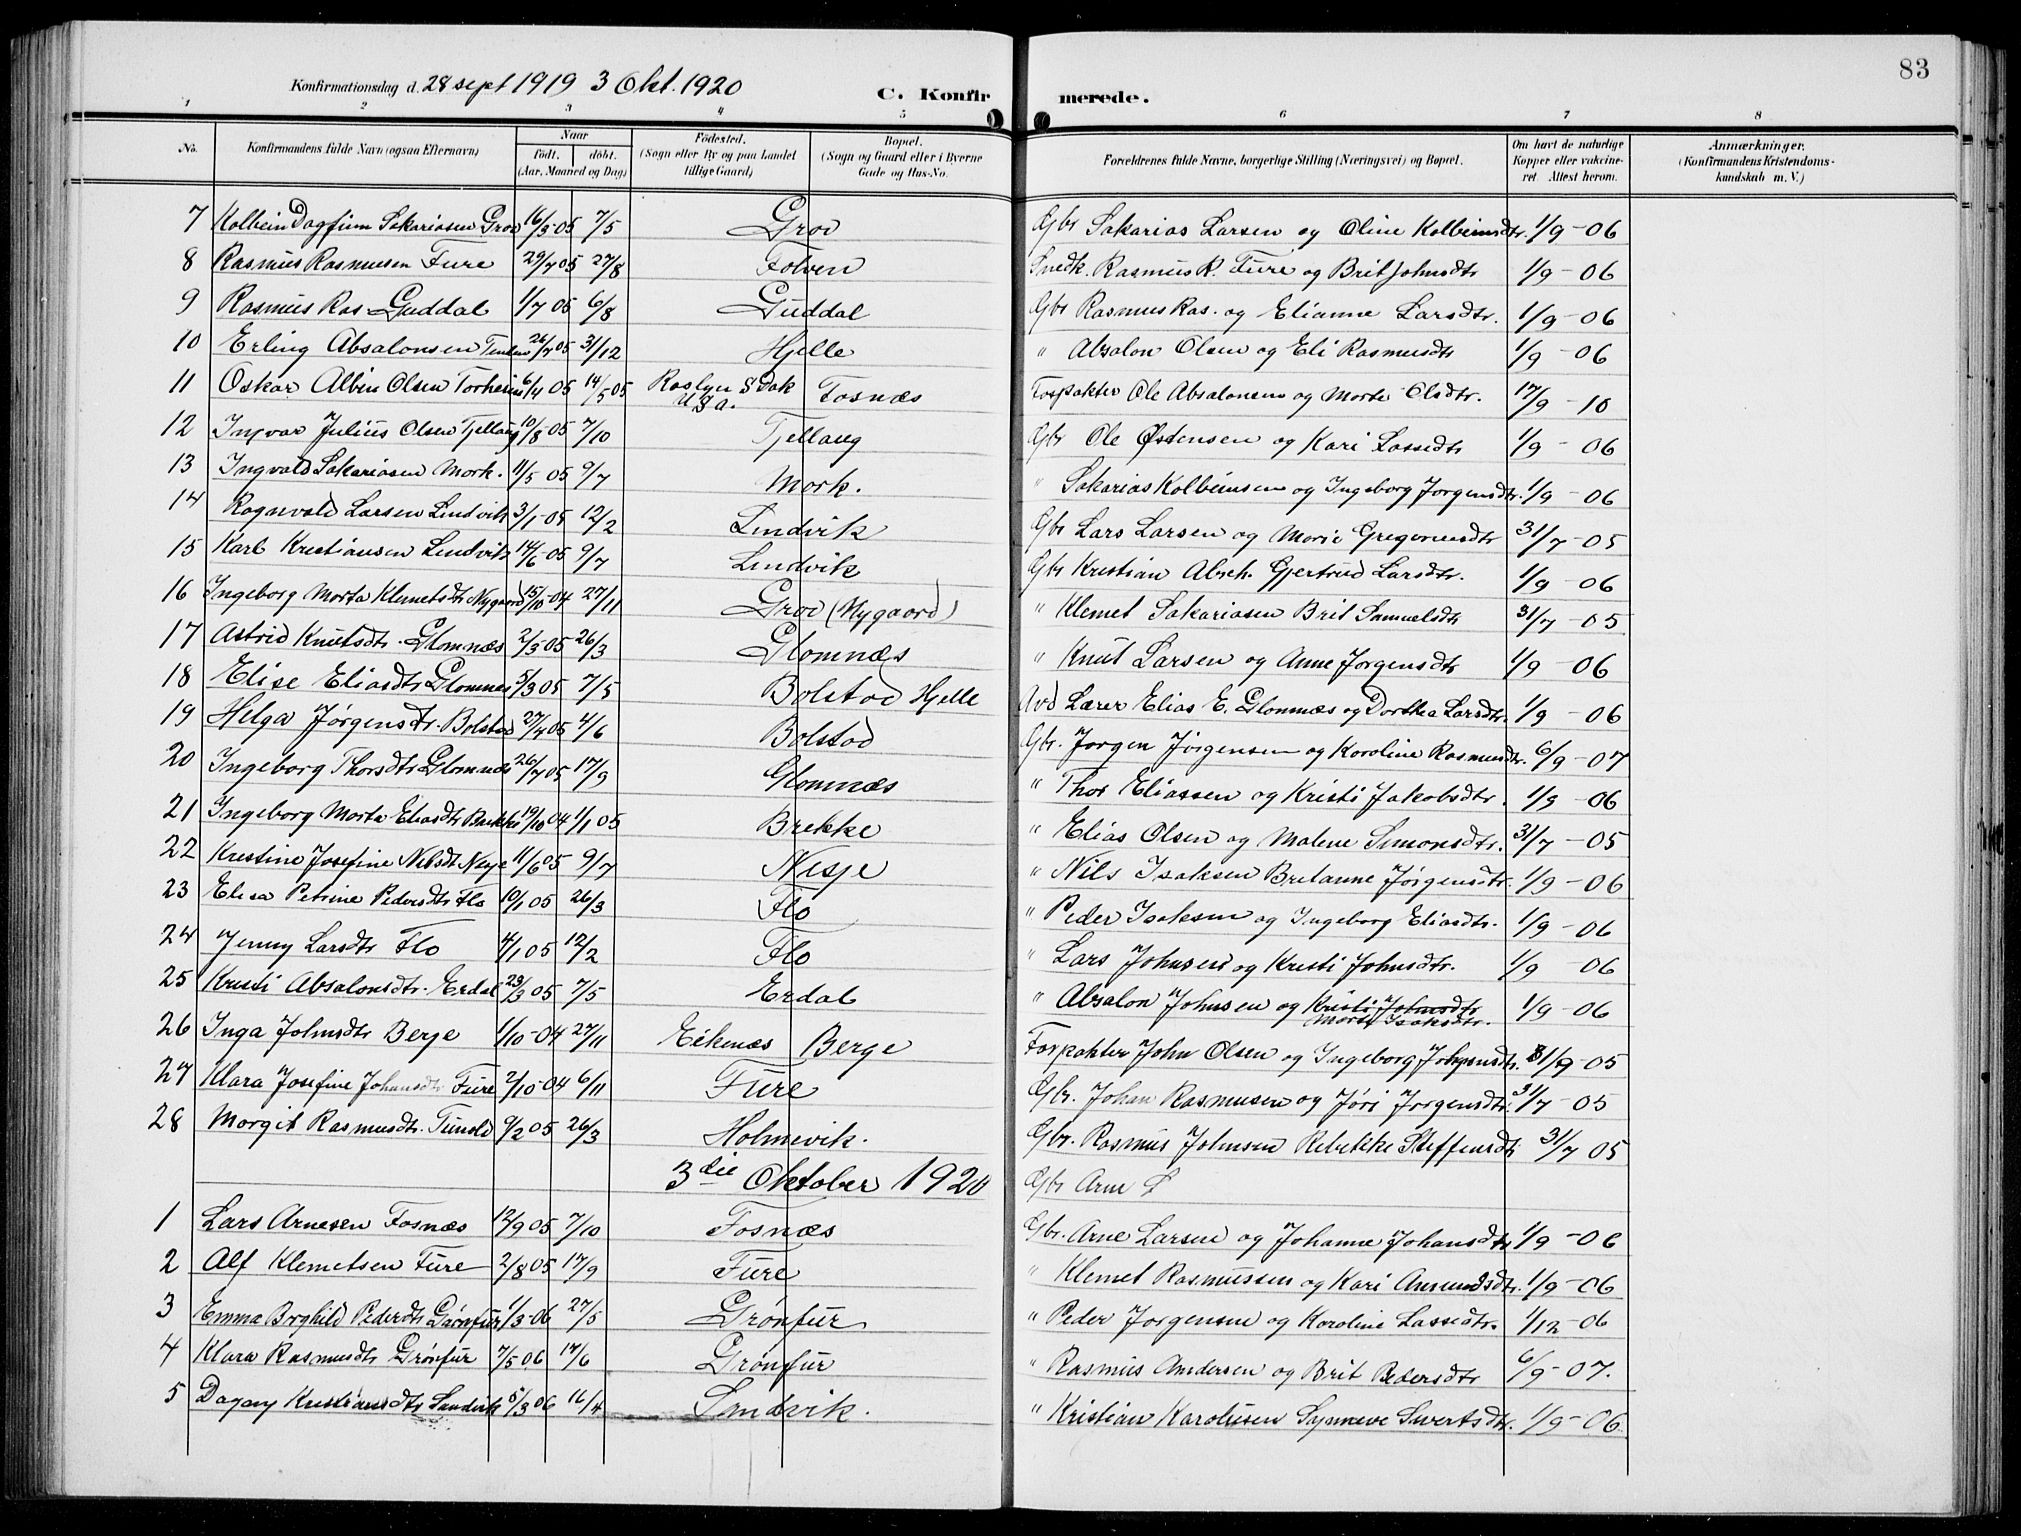 83
Konfirmationsdag d. 28 sept 1919 3 Okt. 1920
C. Konfirmerede.
1 2 3 4 5 6 7 8
No. Konfirmandens fulde Navn (ogsaa Efternavn) Naar født. døbt. (Aar, Maaned og Dag) Fødested. (Sogn eller By og paa Landet tillige Gaard) Bopæl. (Sogn og Gaard eller i Byerne Gade og Hus-No. Forældrenes fulde Navne, borgerlige Stilling (Næringsvei) og Bopæl. Om havt de naturlige Kopper eller vakcineret. Attest herom. Anmærkninger. (Konfirmandens Kristendomskundskab m. V.)
7 Kolbein Dagfinn Sakariasen Grov 16/3-05 7/5 Grov Gbr Sakarias Larsen og Oline Kolbeinsdtr. 1/9-06
8 Rasmus Rasmusen Fure 29/7 05 27/8 Folven Snedk. Rasmus R. Fure og Brit Johnsdtr 1/9-06
9 Rasmus Ras Guddal 1/7 05 6/8 Guddal Gbr Rasmus Ras. og Elianne Larsdtr. 1/9-06
10 Erling Absalonsen 26/7 05 31/12 Hjelle " Absalon Olsen og Eli Rasmusdtr 1/9-06
11 Oskar Albin Olsen Torheim 6/4 05 14/5 05 Roslyn S Dak U S a. Fosnæs Forpakter Ole Absalonsen og Marte Olsdtr. 17/9-10
12 Ingvar Julius Olsen Tjellaug 10/8-05 7/10 Tjellaug Gbr Ole Østensen og Kari Lassedtr 1/9-06
13 Ingvald Sakariasen Mork. 11/5 05 9/7 Mork. " Sakarias Kolbeinsen og Ingeborg Jørgensdtr. 1/9-06
14 Ragnvald Larsen Lindvik 3/1-05 12/2 Lindvik Gbr Lars Larsen og Marie Gregoriusdtr 31/7-05
15 Karl Kristiansen Lindvik 14/6-05 9/7 Lindvik Gbr Kristian Abrah. Gjertrud Larsdtr. 1/9-06
16 Ingeborg Marta Klemetsdtr Nygaard 15/10-04 27/11 Grov (Nygaard) " Klemet Sakariasen Brit Samuelsdtr 31/7-05
17 Astrid Knutsdtr. Glomnæs 2/3-05 26/3 Glomnæs " Knut Larsen og Anne Jørgensdtr 1/9-06
18 Elise Eliasdtr Glomnes 5/3 05 7/5 Bolstad Hjelle Avd Lærer Elias E. Glomnæs og Dorthea Larsdtr. 1/9-06
19 Helga Jørgensdtr. Bolstad 27/4 05 4/6 Bolstad Gbr. Jørgen Jørgensen og Karoline Rasmusdtr. 6/9-07
20 Ingeborg Thorsdtr Glomnæs 26/7 05 17/9 Glomnæs " Thor Eliassen og Kristi Jakobsdtr. 1/9-06
21 Ingeborg Marta Eliasdtr Brekke 19/10 04 1/1 05 Brekke " Elias Olsen og Malene Simonsdtr. 31/7-05
22 Kristine Josefine Nilsdt Nesje 11/6 05 9/7 Nesje " Nils Isaksen Britanne Jørgensdtr. 1/9-06
23 Elisa Petrine Pedersdtr Flo 10/1 05 26/3 Flo " Peder Isaksen og Ingeborg Eliasdtr. 1/9-06
24 Jenny Larsdtr Flo 4/1 05 12/2 Flo " Lars Johnsen og Kristi Johnsdtr. 1/9 06
25 Kristi Absalonsdtr. Erdal 23/3 05 7/5 Erdal " Absalon Johnsen og Kristi Johnsdtr Marte Isaksdtr. 1/9-06
26 Inga Johnsdtr Berge 1/10-04 27/11 Eikenæs Berge Forpakter John Olsen og Ingeborg Johansdtr. 31/9-05
27 Klara Josefine Johansdtr. Fure 2/10-04 6/11 Fure Gbr. Johan Rasmusen og Jøri Jørgensdtr. 31/7-05
28 Margit Rasmusdtr. Tunold 9/2 05 26/3 Holmevik. Gbr. Rasmus Johnsen Rebekke Steffensdtr 31/7 05
3die Oktober 1920 Gbr Arne L
1 Lars Arnesen Fosnæs 12/9 05 7/10 Fosnæs Gbr. Arne Larsen og Johanne Johansdtr 1/9-06
2 Alf Klemetsen Fure 2/8 05 17/9 Fure " Klemet Rasmussen og Kari Amundsdtr. 1/9-06
3 Emma Borghild Pedersdtr Grønfur 1/3-06 27/5 Grønfur " Peder Jørgensen og Karoline Lassedtr. 1/12-06
4 Klara Rasmusdtr Grønfur 7/5 06 17/6 Grønfur " Rasmus Andersen og Brit Pedersdtr 6/9-07.
5 Dagny Kristiansdtr Sandvik 5/3 06 16/4 Sandvik. " Kristian Karolusen Synneve Sivertsdtr. 1/9-06